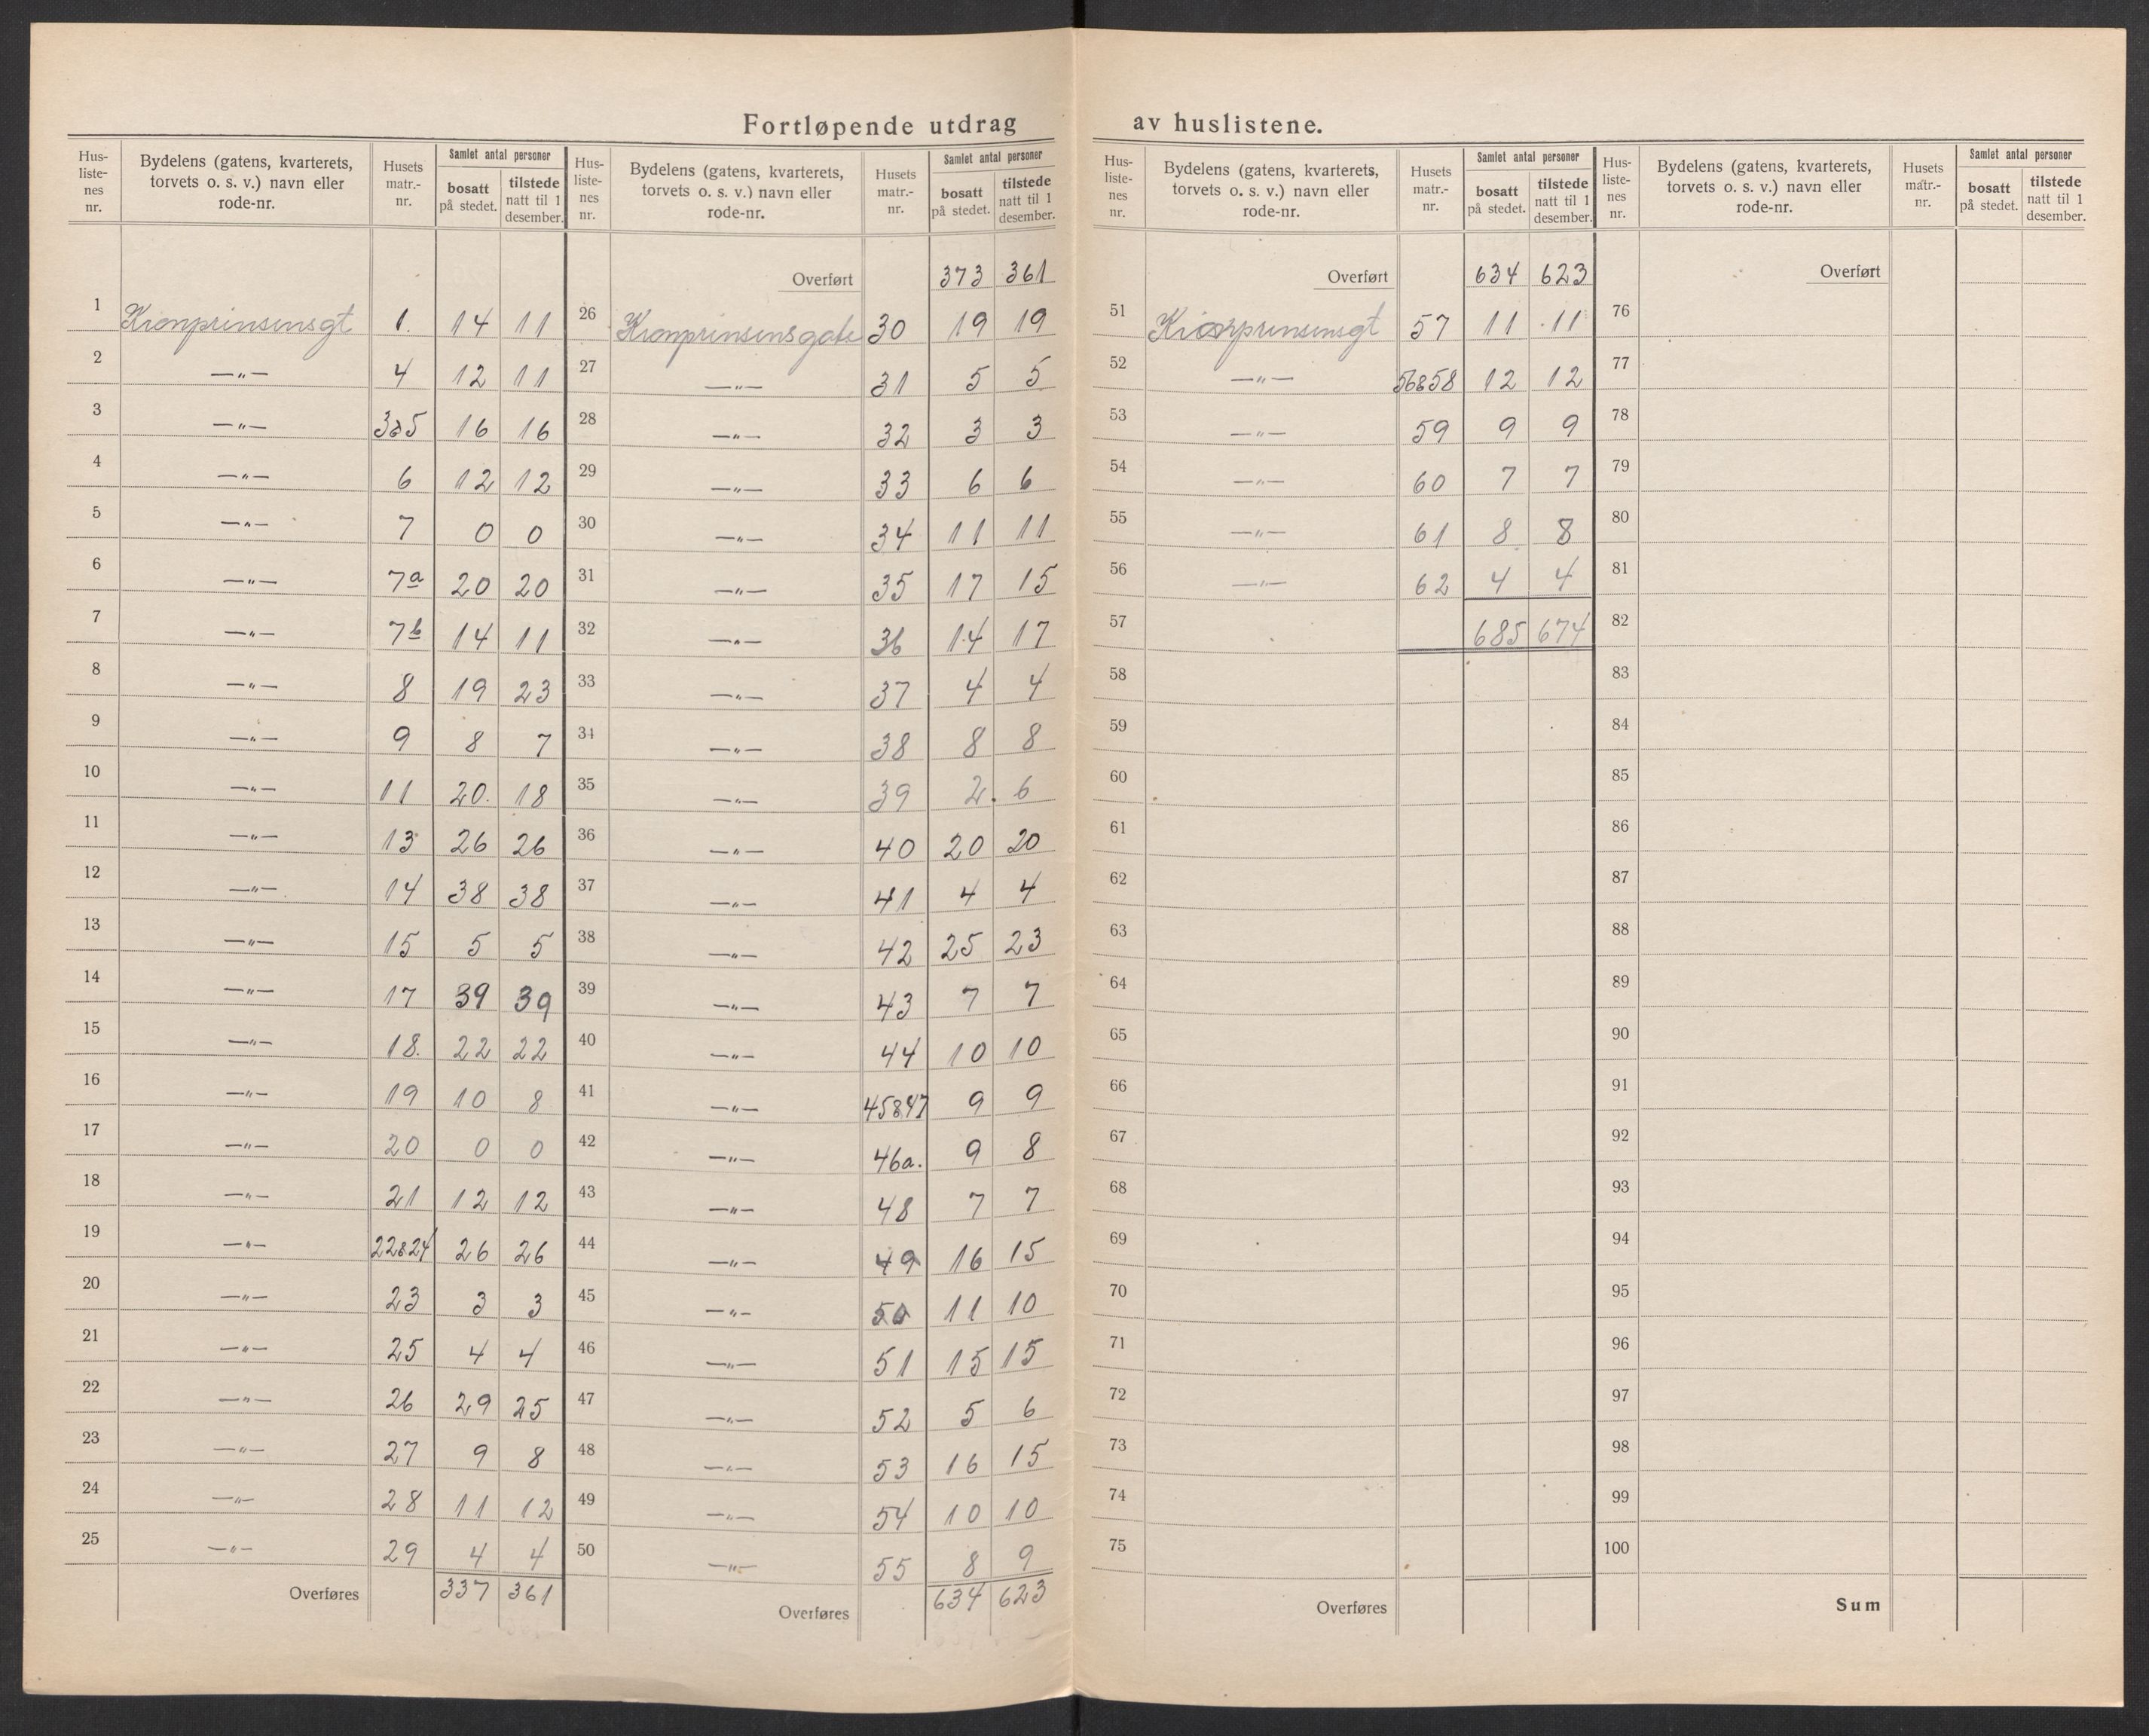 Fortløpende utdrag av huslistene.
Hus-listenes nr. | Bydelens (gatens, kvarterets, torvets o. s. v.) navn eller rode-nr. | Husets matr.-nr. | Samlet antal personer bosatt på stedet. | tilstede natt til 1 desember.
1 Kronprinsensgt 1. 14 11
2 —„— 4 12 11
3 —„— 3&5 16 16
4 —„— 6 12 12
5 —„— 7 0 0
6 —„— 7a 20 20
7 —„— 7b 14 11
8 —„— 8 19 23
9 —„— 9 8 7
10 —„— 11 20. 18
11 —„— 13 26 26
12 —„— 14 38 38
13 —„— 15 5 5
14 —„— 17 39 39
15 —„— 18. 22 22
16 —„— 19 10 8
17 —„— 20 0 0
18 —„— 21 12 12
19 —„— 22&24 26 26
20 —„— 23 3 3
21 —„— 25 4 4
22 —„— 26 29 25
23 —„— 27 9 8
24 —„— 28 11 12
25 —„— 29 4 4
Overføres 337 361
Hus-listenes nr. | Bydelens (gatens, kvarterets, torvets o. s. v.) navn eller rode-nr. | Husets matr.-nr. | Samlet antal personer bosatt på stedet. | tilstede natt til 1 desember.
Overført 373 361
26 Kronprinsensgate 30 19 19
27 —„— 31 5 5
28 —„— 32 3 3
29 —„— 33 6 6
30 —„— 34 11 11
31 —„— 35 17 15
32 —„— 36 14 17
33 —„— 37 4 4
34 —„— 38 8 8
35 —„— 39 2. 6
36 —„— 40 20 20
37 —„— 41 4 4
38 —„— 42 25 23
39 —„— 43 7 7
40 —„— 44 10 10
41 —„— 45&47 9 9
42 —„— 46a. 9 8
43 —„— 48 7 7
44 —„— 49 16 15
45 —„— 50 11 10
46 —„— 51 15 15
47 —„— 52 5 6
48 —„— 53 16 15
49 —„— 54 10 10
50 —„— 55 8 9
Overføres 634 623
Hus-listenes nr. | Bydelens (gatens, kvarterets, torvets o. s. v.) navn eller rode-nr. | Husets matr.-nr. | Samlet antal personer bosatt på stedet. | tilstede natt til 1 desember.
Overført 634 623
51 Kronprinsensgt 57 11 11
52 —„— 56&58 12 12
53 —„— 59 9 9
54 —„— 60 7 7
55 —„— 61 8 8
56 —„— 62 4 4
57 685 674
58
59
60
61
62
63
64
65
66
67
68
69
70
71
72
73
74
75
Overføres
Hus-listenes nr. | Bydelens (gatens, kvarterets, torvets o. s. v.) navn eller rode-nr. | Husets matr.-nr. | Samlet antal personer bosatt på stedet. | tilstede natt til 1 desember.
Overført
76
77
78
79
80
81
82
83
84
85
86
87
88
89
90
91
92
93
94
95
96
97
98
99
100
Sum